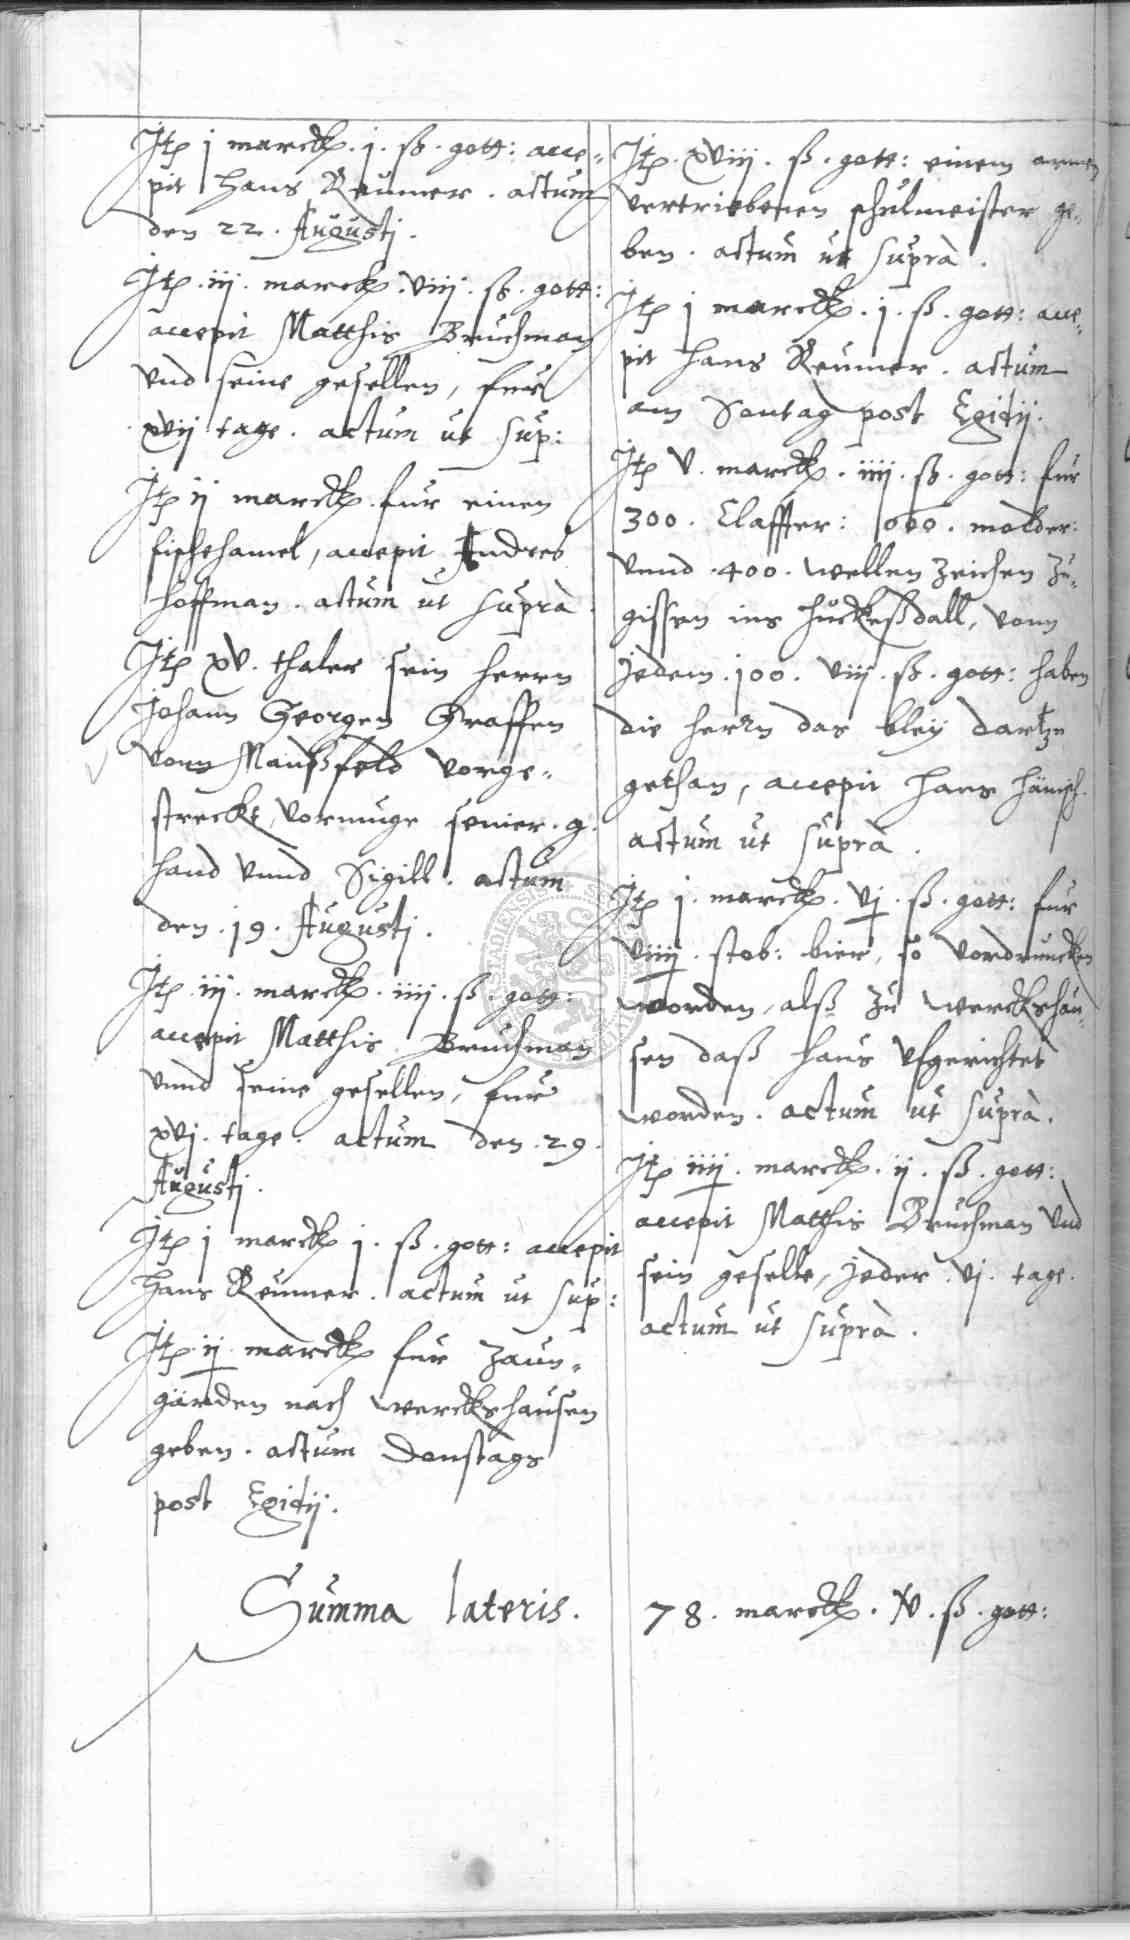 Jtem j marck. j. ß. gott: acce-
pit Hans Reumer. actum
den 22. Augustj.
Jtem. iij. marck. viij. ß. gott:
accepit Matthis Bruchman
vnd seine gesellen, fur
xvij tage. actum ut sup:
Jtem ij marck fur einen
fischhamel, accepit Andres
Hoffman. actum ut suprà.
Jtem xv. thaler sein herrn
Johann Georgen Graffen
vonn Manßfeld vorge-
streckt, vormuge seiner. g.
hand vnnd Sigill. actum
den. 19. Augustj.
Jtem. iij. marck. iiij. ß. gott:
accepit Matthis Bruchman
vnnd seine gesellen, fur
xvj. tage. actum den. 29.
Augustj.
Jtem j marck j. ß. gott: accepit
Hans Reumer. actum ut sup:
Jtem. ij. marck fur zaun-
gärden nach Werckshausen
geben. actum Donstags
post Egidij.
Summa lateris.
Jtem. xviij. ß. gott: einem armen
vertriebenen schulmeister ge-
ben. actum ut suprà.
Jtem j marck. j. ß. gott: acce-
pit Hans Reumer. actum
am Sontag post Egidij.
Jtem v. marck. iiij. ß. gott: fur
300. Claffter: molder:
vnnd. 400. wellen zeichen zu-
gissen ins vonn
jedem. 100. viij. ß. gott: haben
die herrn das bley dartzu
gethan, accepit Hans
actum ut suprà.
Jtem j. marck. vj. ß. gott: fur
viiij. stob: bier, so vordruncken
worden, alß zu Werckshau-
sen daß haus vfgerichtet
worden. actum ut suprà.
Jtem iiij. marck. ij. ß. gott:
accepit Matthis Bruchman vnd
sein geselle, jeder. vj. tage.
actum ut suprà.
78. marck. xv. ß. gott: